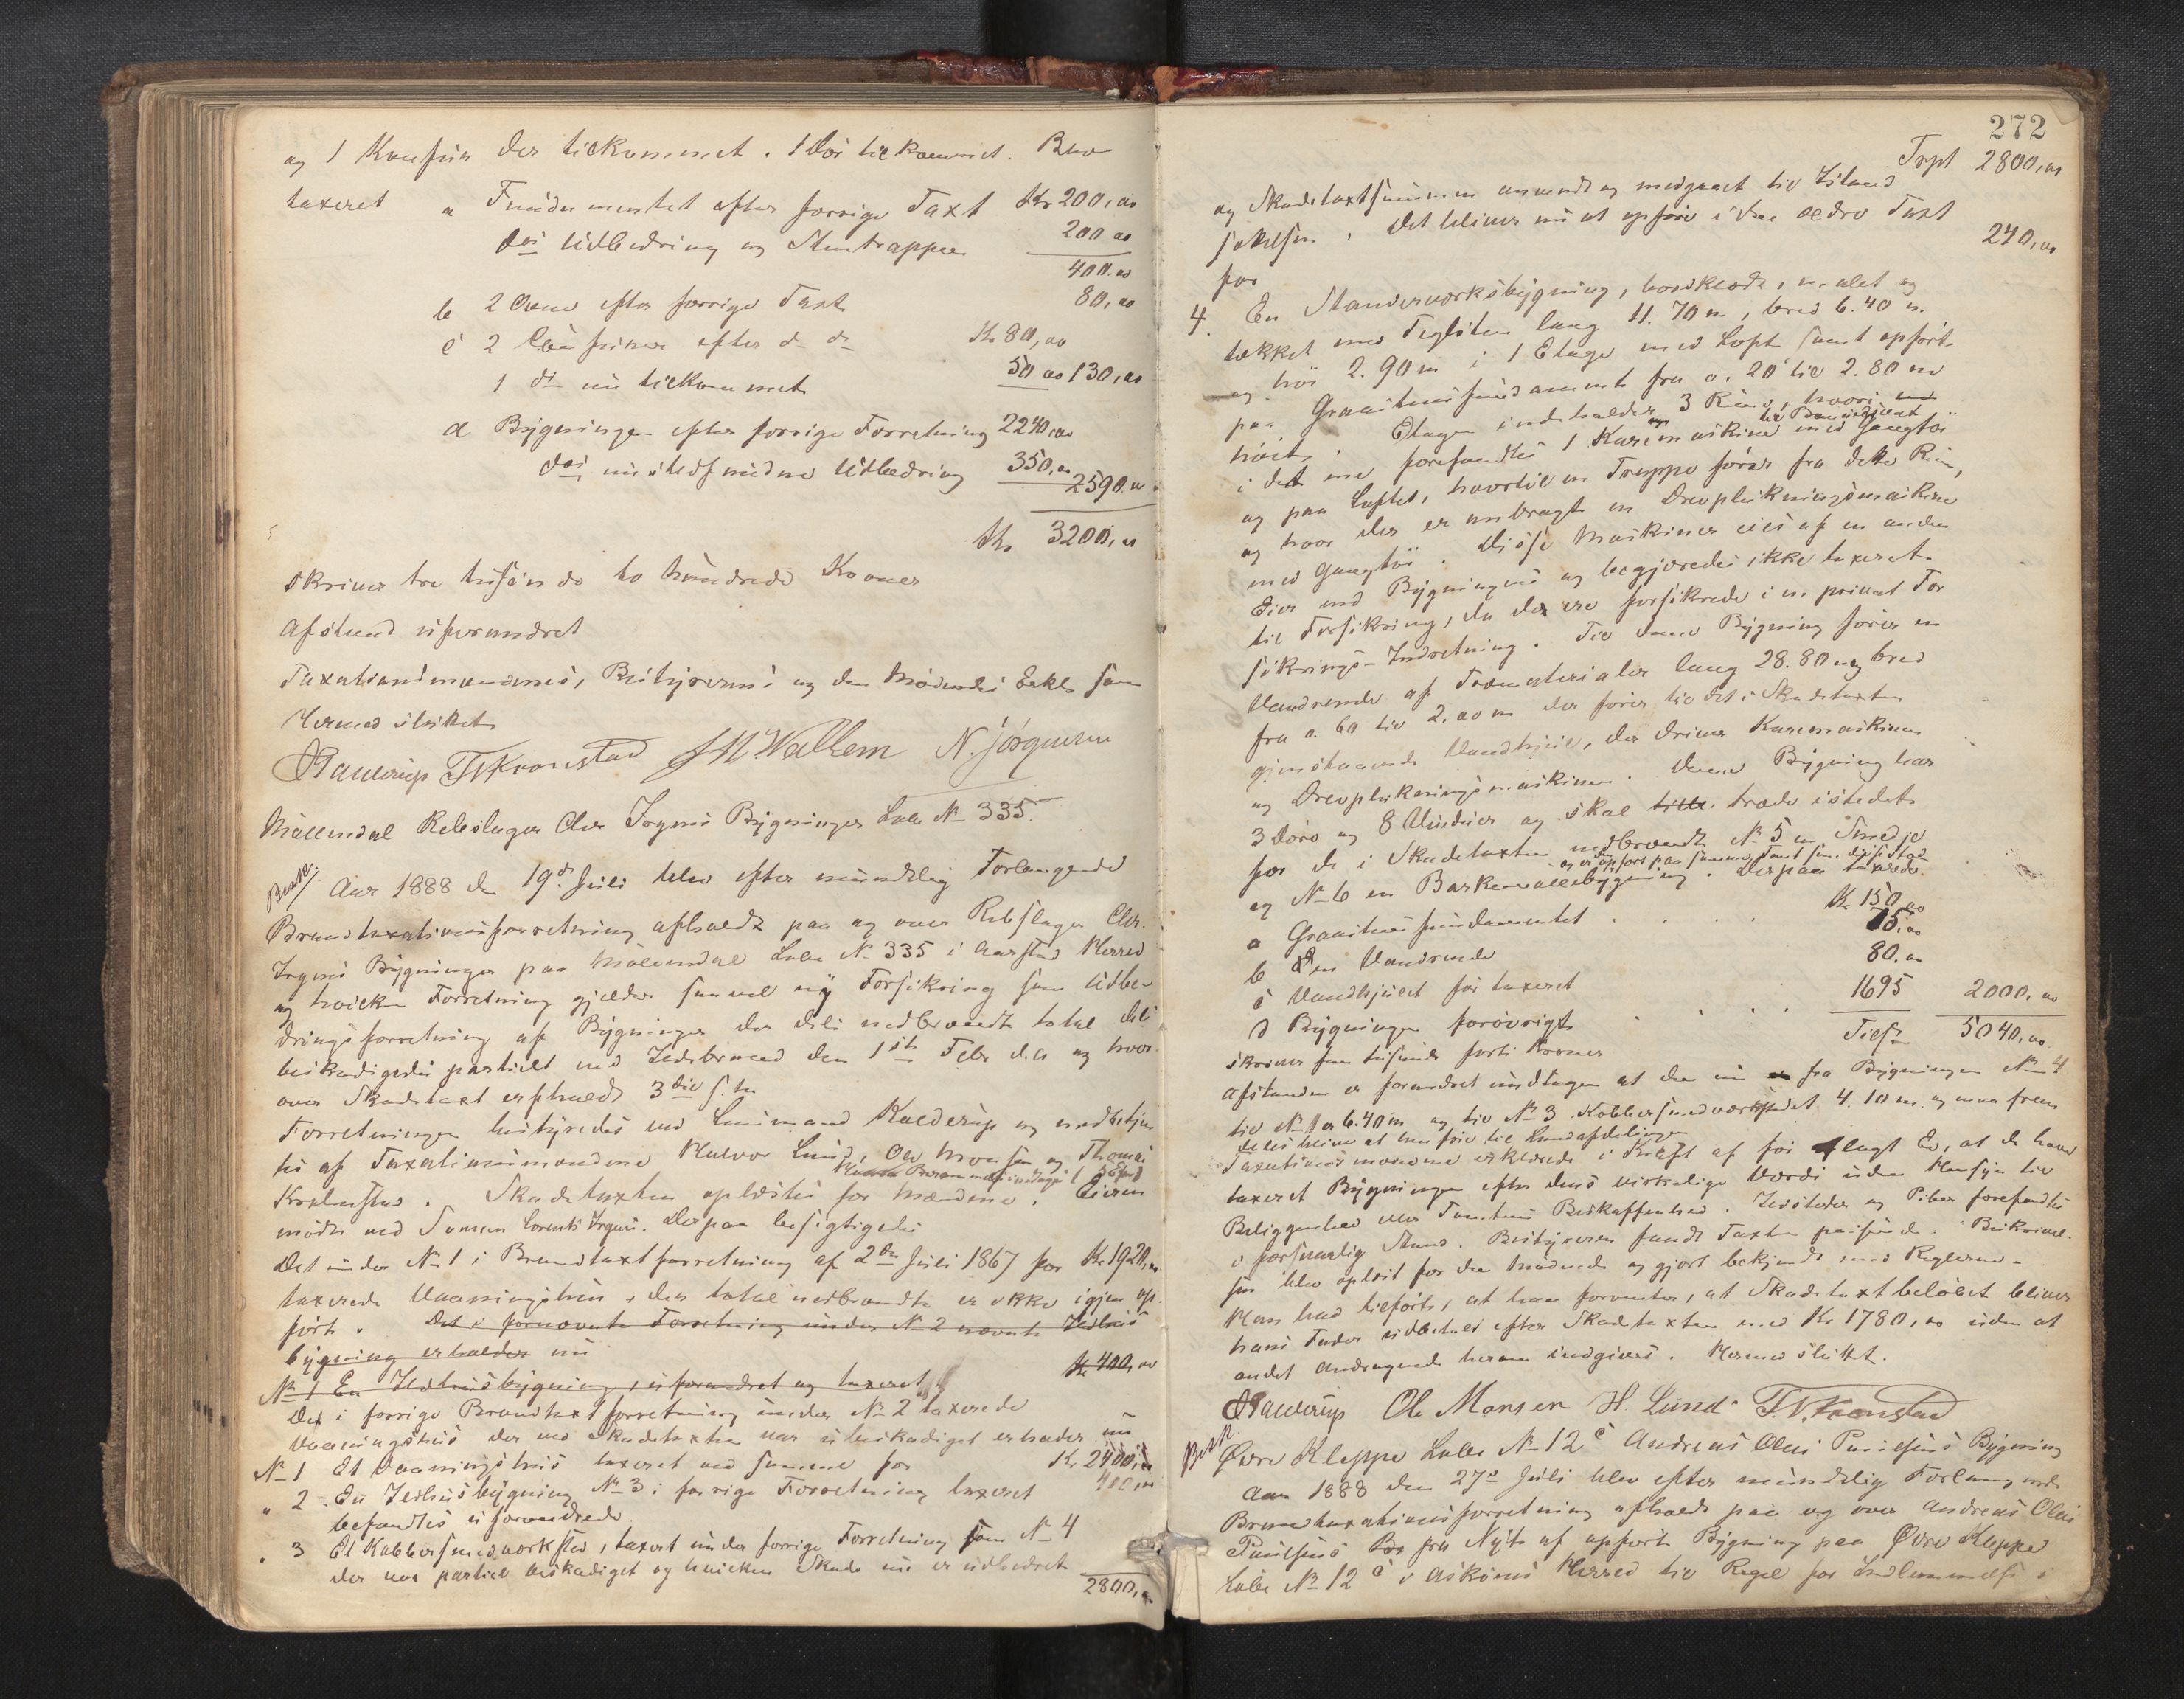 og 1 Kakkelovn der tilkommet. 1 Dør tilkommet. Blev
taxeret a Fundamentet efter forrige Taxt Kr 200,00
do Udbedring og Stentrapper 200 00
400.00
b 2 Ovne efter forrige Taxt 80,00
c 2 efter do do Kr 80,00
1 do nu tilkommet 50 00 130,00
d Bygningen efter forrige Forretning 2240,00
do nu stedfundne Udbedring 350,00 2590.00
Kr 3200,00
skriver tre tusinde to hundrede Kroner
Afstand uforandret
Taxationsmændenes, Bestyrerens og den Mødendes Erkl som
Hermed sluttet
T Kronstad J M. Wallem N. Jørgensen
Møllendal Rebslager Chr Irgens Bygninger Løbe No 335.
Besk/ Aar 1888 den 19de Juli blev efter mundtlig Forlangende
Brandtaxationsforretning afholdt paa og over Rebslager Chr.
Irgens Bygninger paa Møllendal Løbe No 335 i Aarstad Herred
og hvilken Forretning gjælder saavel ny Forsikring som Udbe-
dringsforretning af Bygninger der dels nedbrændte total dels
beskadigedes partielt ved Ildebrand den 1ste Febr d.A og hvor-
over Skadetaxt er afholdt 3die s. m
Forretningen bestyredes ved Lensmand og ved betjen
tes af Taxationsmændene Halvor Lund, Ole Monsen og Thomas
Kronstad. Skadetaxten oplæstes for Mændene. Eieren
mødte ved Sønnen Lorentz Irgens. Derpaa besigtigedes
Det under No 1 i Brandtaxtforretning af 2den Juli 1867 for Kr 1920,00
taxerede Vaaningshus, den total nedbrændte er ikke igjen op-
ført. Det i fornævnte Forretning under No 2 nævnte Ildhus
bygning erholder nu
No 1 En Ildhusbygning, uforandret og taxeret Kr 400,00
Det i forrige Brandtaxtforretning under No 2 taxerede
Vaaningshus der ved Skadetaxten var ubeskadiget erholder nu
No 1 Et Vaaningshus taxeret ved samme for Kr 2400,00
" 2 En Ildhusbygning No 3 i forrige Forretning taxeret 400,00
befandtes uforandrede
" 3 Et Kobbersmedværksted, taxeret under forrige Forretning som No 4
der var partiel beskadiget og hvilken Skade nu er udbedret
2800,00
272
Trpt 2800,00
og Skadetaxtsummen anvendt og medgaaet til Istand
sættelsen. Det bliver nu at opføre i den ældre Taxt
for 240,00
4. En Standerværksbygning, bordklædt, malet og
tækket med Teglsten lang 11.70 m, bred 6.40 m.
og høi 2.90 m i 1 Etage med Loft samt opført
paa Graastensfundament fra 0.20 til 2.80 m
høit. Etagen indeholder 3 Rum, hvori
i det ene forefandtes 1 Karemaskine med Gangtøi
og paa Loftet, hvortil en Trappe fører fra dette Rum,
og hvor der er anbragt en Drevplukningsmaskine
med Gangtøi. Disse Maskiner eies af en anden
Eier end Bygningens og begjæredes ikke taxeret
til Forsikring, da de ere forsikrede i en privat For
sikrings-Indretning. Til denne Bygning fører en
Vandrende af Træmaterialer lang 28.80 m og bred
fra 0.60 til 2.00 m der fører til det i Skadetaxten
gjenstaaende Vandhjul, der driver Karemaskinen
og Drevplukningsmaskinen. Denne Bygning har
3 Døre og 8 Vinduer og skal træde istedet
for de i Skadetaxten nedbrændte No 5 en Smedje
og No 6 en Barkemøllebygning. Derpaa taxeredes
og er opført paa samme Tomt som disse
a Graastensfundamentet . . . . Kr 150,00
b Den Vandrende 75,00
c Vandhjulet før taxeret 80.00
d Bygningen forøvrigt . . . . 1695 2000,00
Tils. 5040,00
skriver fem tusinde førti Kroner
Afstanden er forandret undtagen at den nu fra Bygningen No 4
til No 1 er 6.40 m og til No 3 Kobbersmedværkstedet 4.10 m.
Taxationsmændene erklærede i Kraft af før aflagt Ed, at de have
taxeret Bygningen efter dens virkelige Værdi uden Hensyn til
Beliggenhed eller Tomtens Beskaffenhed. Ildsteder og Piber forefandtes
i forsvarlig Stand. Bestyreren fandt Taxten passende. Beskrivel-
sen blev oplæst for den Mødende og gjort bekjendt med Reglerne.
Han lod tilføre, at han forventer, at Skadetaxtbeløbet bliver
hans Fader udbetalt efter Skadetaxten med Kr 1780,00 uden at
andet Andragende herom indgives. Hermed sluttet.
Ole Monsen H. Lund T. Kronstad
Besk Øvre Kleppe Løbe No 12 c Andreas Olai Paulsens Bygning
Aar 1888 den 27de Juli blev efter mundtlig Forlangende
Brandtaxationsforretning afholdt paa og over Andreas Olai
Paulsens fra Nyt af opført Bygning paa Øvre Kleppe
Løbe No 12 c i Askøens Herred til Regel for Indlemmelse i